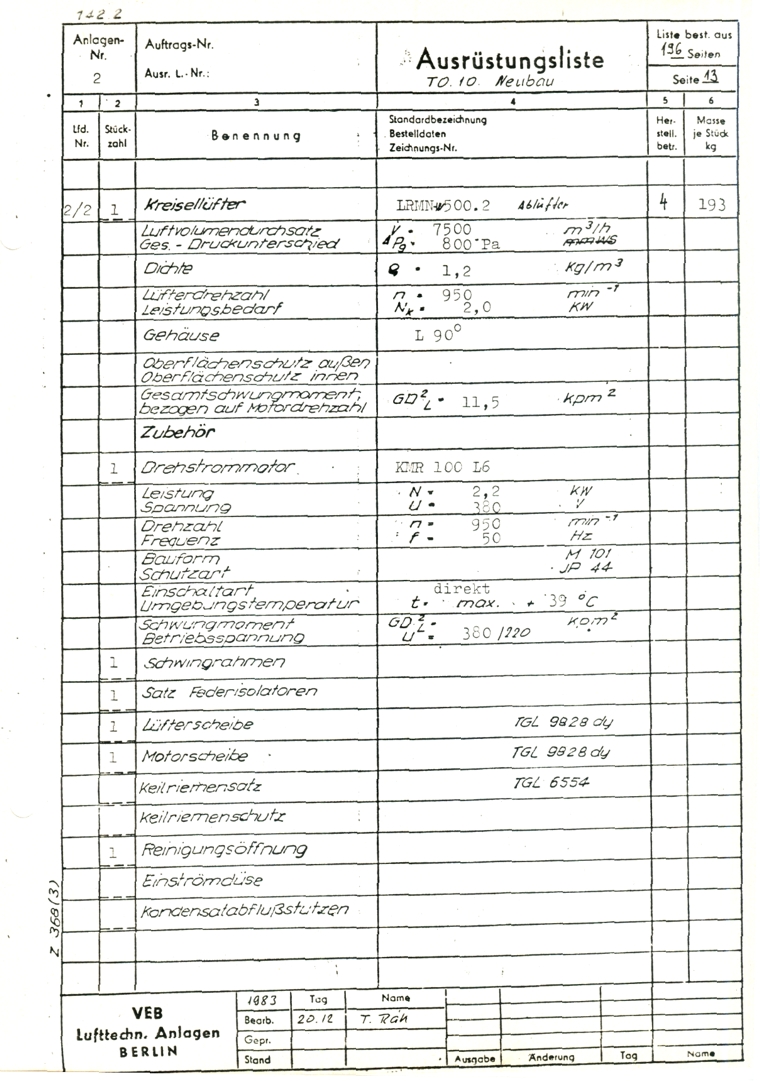 142 2
Anlagen-Nr. 2
Auftrags-Nr.
Ausr. L.-Nr.:
Ausrüstungsliste
TO. 10. Neubau
Liste best. aus
196 Seiten
Seite 13
1 2 3 4 5 6
Lfd. Nr. Stück-zahl Benennung
Standardbezeichnung
Bestelldaten
Zeichnungs-Nr.
Her-stell. betr.
Masse je Stück kg
2/2 1 Kreisellüfter LRMN 500.2 Ablüfter 4 193
Luftvolumendurchsatz V = 7500 m³/h
Ges.-Druckunterschied ΔPg = 800 Pa mmWS
Dichte ϱ = 1,2 Kg/m³
Lüfterdrehzahl n = 950 min⁻¹
Leistungsbedarf Nk = 2,0 KW
Gehäuse L 90°
Oberflächenschutz außen
Oberflächenschutz innen
Gesamtschwungmoment, GD²L = 11,5 kpm²
bezogen auf Motordrehzahl
Zubehör
1 Drehstrommotor KMR 100 L6
Leistung N = 2,2 KW
Spannung U = 380 V
Drehzahl n = 950 min⁻¹
Frequenz f = 50 Hz
Bauform M 101
Schutzart JP 44
Einschaltart direkt
Umgebungstemperatur t = max. + 39 °C
Schwungmoment GD²L = kpm²
Betriebsspannung U = 380/220
1 Schwingrahmen
1 Satz Federisolatoren
1 Lüfterscheibe TGL 9828 dy
1 Motorscheibe TGL 9828 dy
Keilriemensatz TGL 6554
Keilriemenschutz
1 Reinigungsöffnung
Einströmdüse
Kondensatabflußstutzen
Z 368 (3)
VEB
Lufttechn. Anlagen
BERLIN
1983 Tag Name
Bearb. 20.12 T. Rák
Gepr.
Stand
Ausgabe Änderung Tag Name